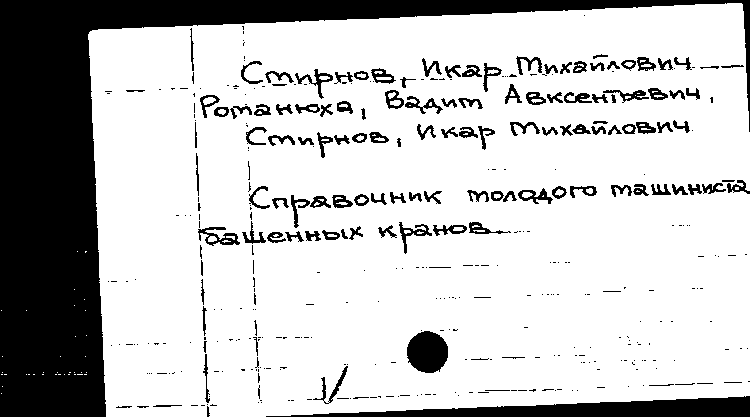 Смирнов, Икар Михайлович
Романюха, Вадим Авксентьевич,
Смирнов, Икар Михайлович
Справочник молодого машиниста
башенных кранов.